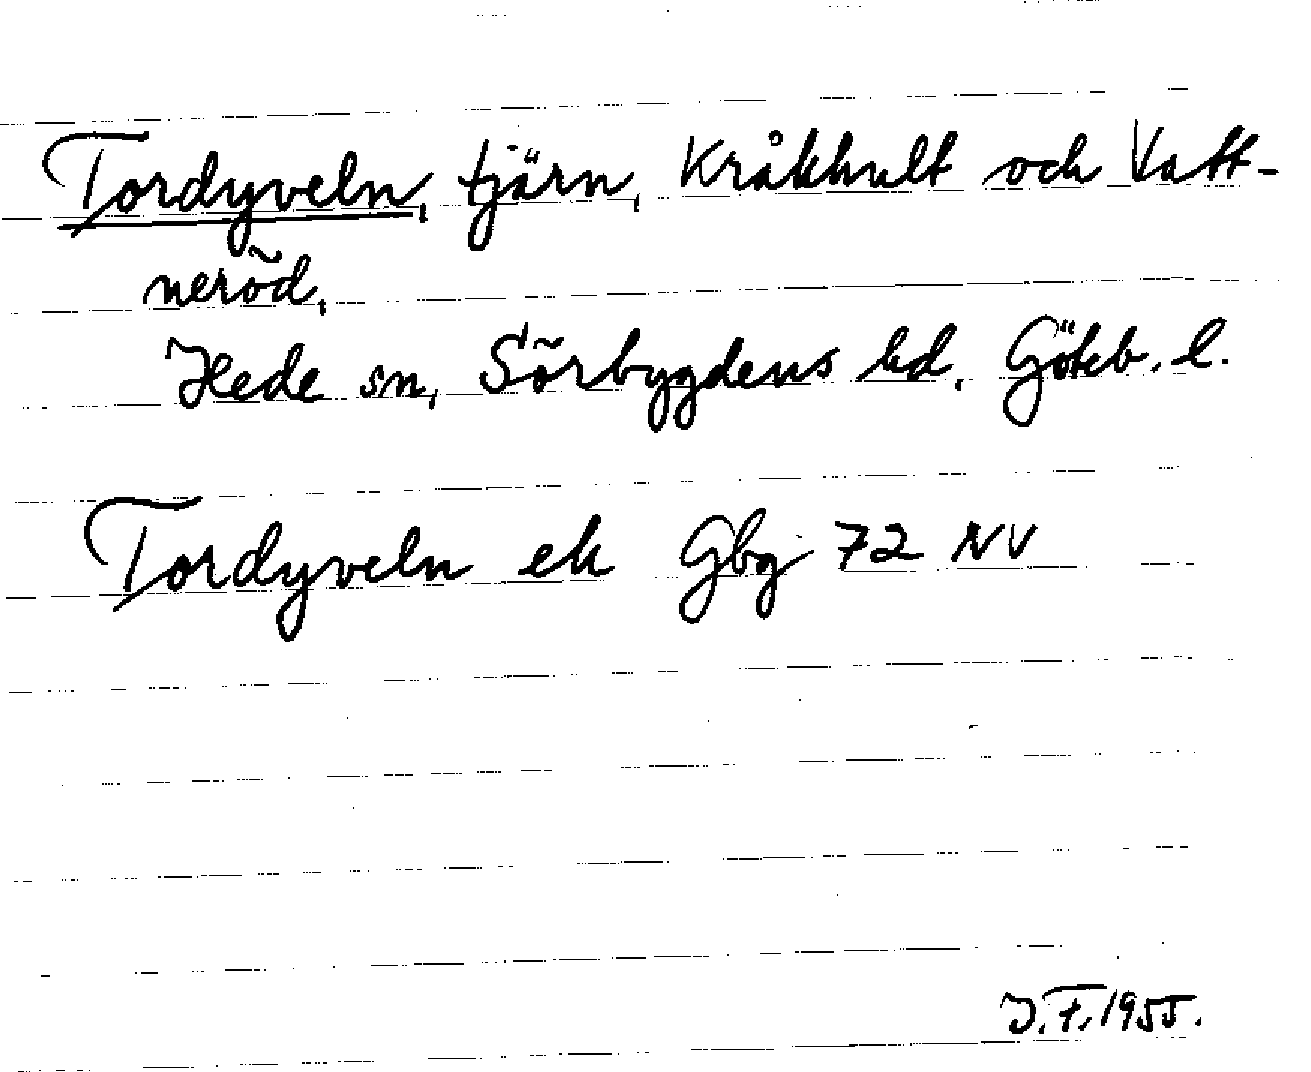 Tordyveln, tjärn, Kråkhult och Vatt-
neröd,
Hede sn, Sörbygdens hd, Göteb. l.
Tordyveln ek Gbg 72 NV
J.F. 1955.